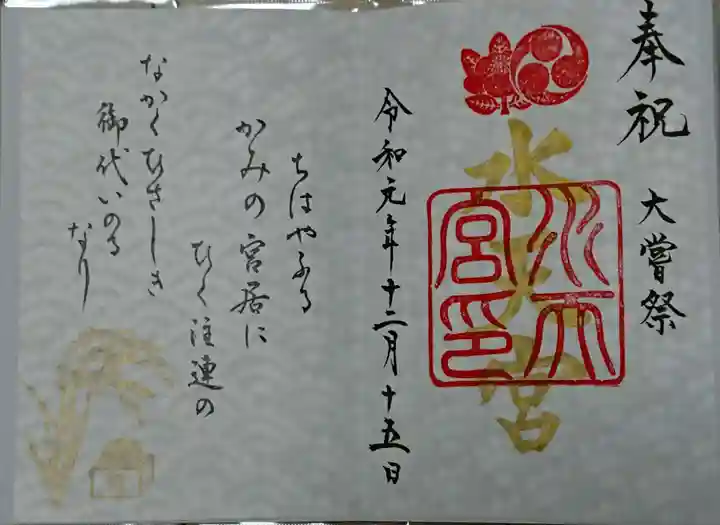 奉祝
大嘗祭
水天宮
水天宮印
令和元年十二月十五日
ちはやふる
かみの宮居に
ひく注連の
なかくひさしき
御代いのる
なり